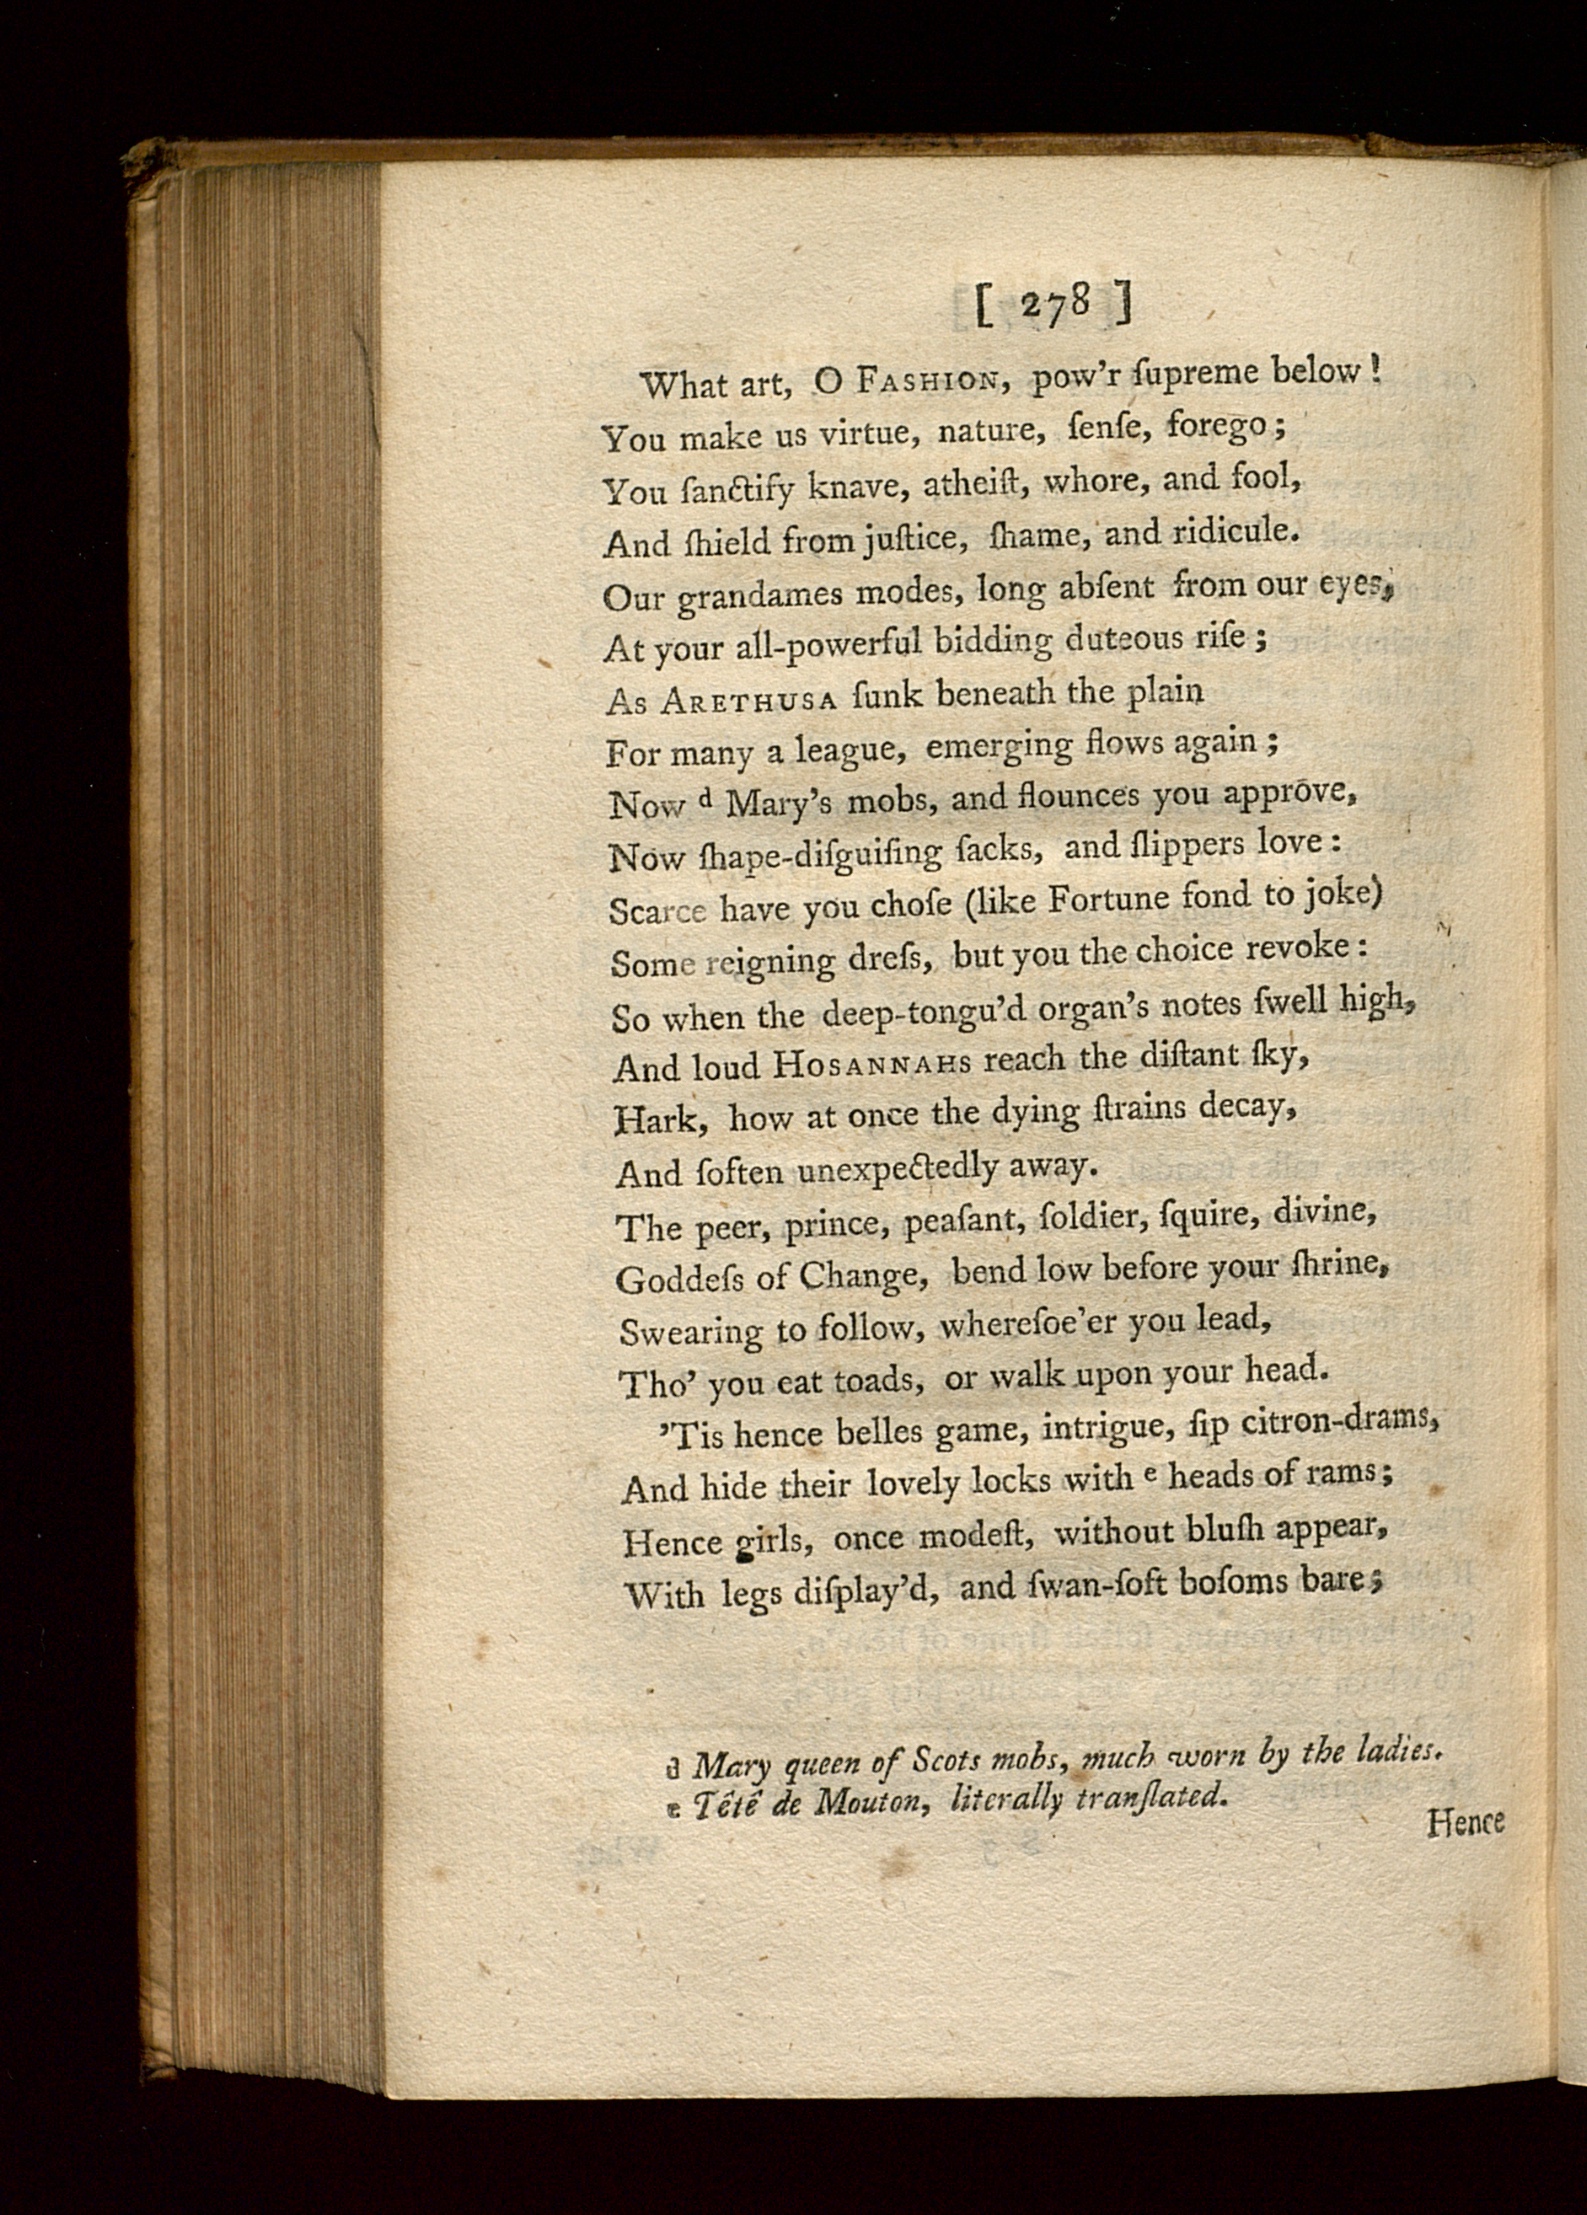 [ 278 ]
What art, O FASHION, pow'r ſupreme below!
You make us virtue, nature, ſenſe, forego;
You ſanctify knave, atheiſt, whore, and fool,
And ſhield from juſtice, ſhame, and ridicule.
Our grandames modes, long abſent from our eyes,
At your all-powerful bidding duteous riſe;
As ARETHUSA ſunk beneath the plain
For many a league, emerging flows again;
Now d Mary's mobs, and flounces you approve,
Now ſhape-diſguiſing ſacks, and ſlippers love:
Scarce have you choſe (like Fortune fond to joke)
Some reigning dreſs, but you the choice revoke:
So when the deep-tongu'd organ's notes ſwell high,
And loud HOSANNAHS reach the diſtant ſky,
Hark, how at once the dying ſtrains decay,
And ſoften unexpectedly away.
The peer, prince, peaſant, ſoldier, ſquire, divine,
Goddeſs of Change, bend low before your ſhrine,
Swearing to follow, whereſoe'er you lead,
Tho' you eat toads, or walk upon your head.
'Tis hence belles game, intrigue, ſip citron-drams,
And hide their lovely locks with e heads of rams;
Hence girls, once modeſt, without bluſh appear,
With legs diſplay'd, and ſwan-ſoft boſoms bare;
d Mary queen of Scots mobs, much worn by the ladies.
e Têtê de Mouton, literally tranſlated.
Hence